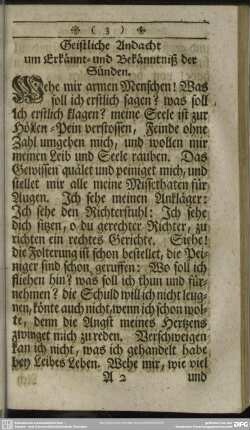 ( 3 )
Geistliche Andacht
um Erkännt- und Bekänntniß der
Sünden.
Wehe mir armen Menschen! Was
soll ich erstlich sagen? was soll
ich erstlich klagen? meine Seele ist zur
Höllen-Pein verstossen, Feinde ohne
Zahl umgeben mich, und wollen mir
meinen Leib und Seele rauben. Das
Gewissen quälet und peiniget mich, und
stellet mir alle meine Missethaten für
Augen. Ich sehe meinen Ankläger:
Ich sehe den Richterstuhl: Ich sehe
dich sitzen, o du gerechter Richter, zu
richten ein rechtes Gerichte. Siehe!
die Folterung ist schon bestellet, die Pei-
niger sind schon geruffen: Wo soll ich
fliehen hin? was soll ich thun und für-
nehmen? die Schuld will ich nicht leug-
nen, könte auch nicht, wenn ich schon wol-
te, denn die Angst meines Hertzens
zwinget mich zu reden. Verschweigen
kan ich nicht, was ich gehandelt habe
bey Leibes Leben. Wehe mir, wie viel
A 2 und